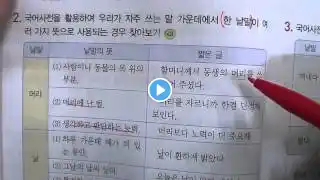 2. 국어사전을 활용하여 우리가 자주 쓰는 말 가운데에서 한 낱말이 여
러 가지 뜻으로 사용되는 경우 찾아보기
3. 국어사전
낱말
낱말의 뜻
짧은 글
머리
(1) 사람이나 동물의 목 위의
부분.
할머니께서 동생의 머리를 쓰
어 주셨다.
(2) 머리에 난 털.
머리를 자르니까 한결
보인다.
(3) 생각하고 판단하는 능력.
머리보다 노력이 더 중요해
날
(1) 하루 가운데 해가 떠 있
는 동안.
날이 환하게 밝았다.
(2) 그날의 날씨
오늘은 날이